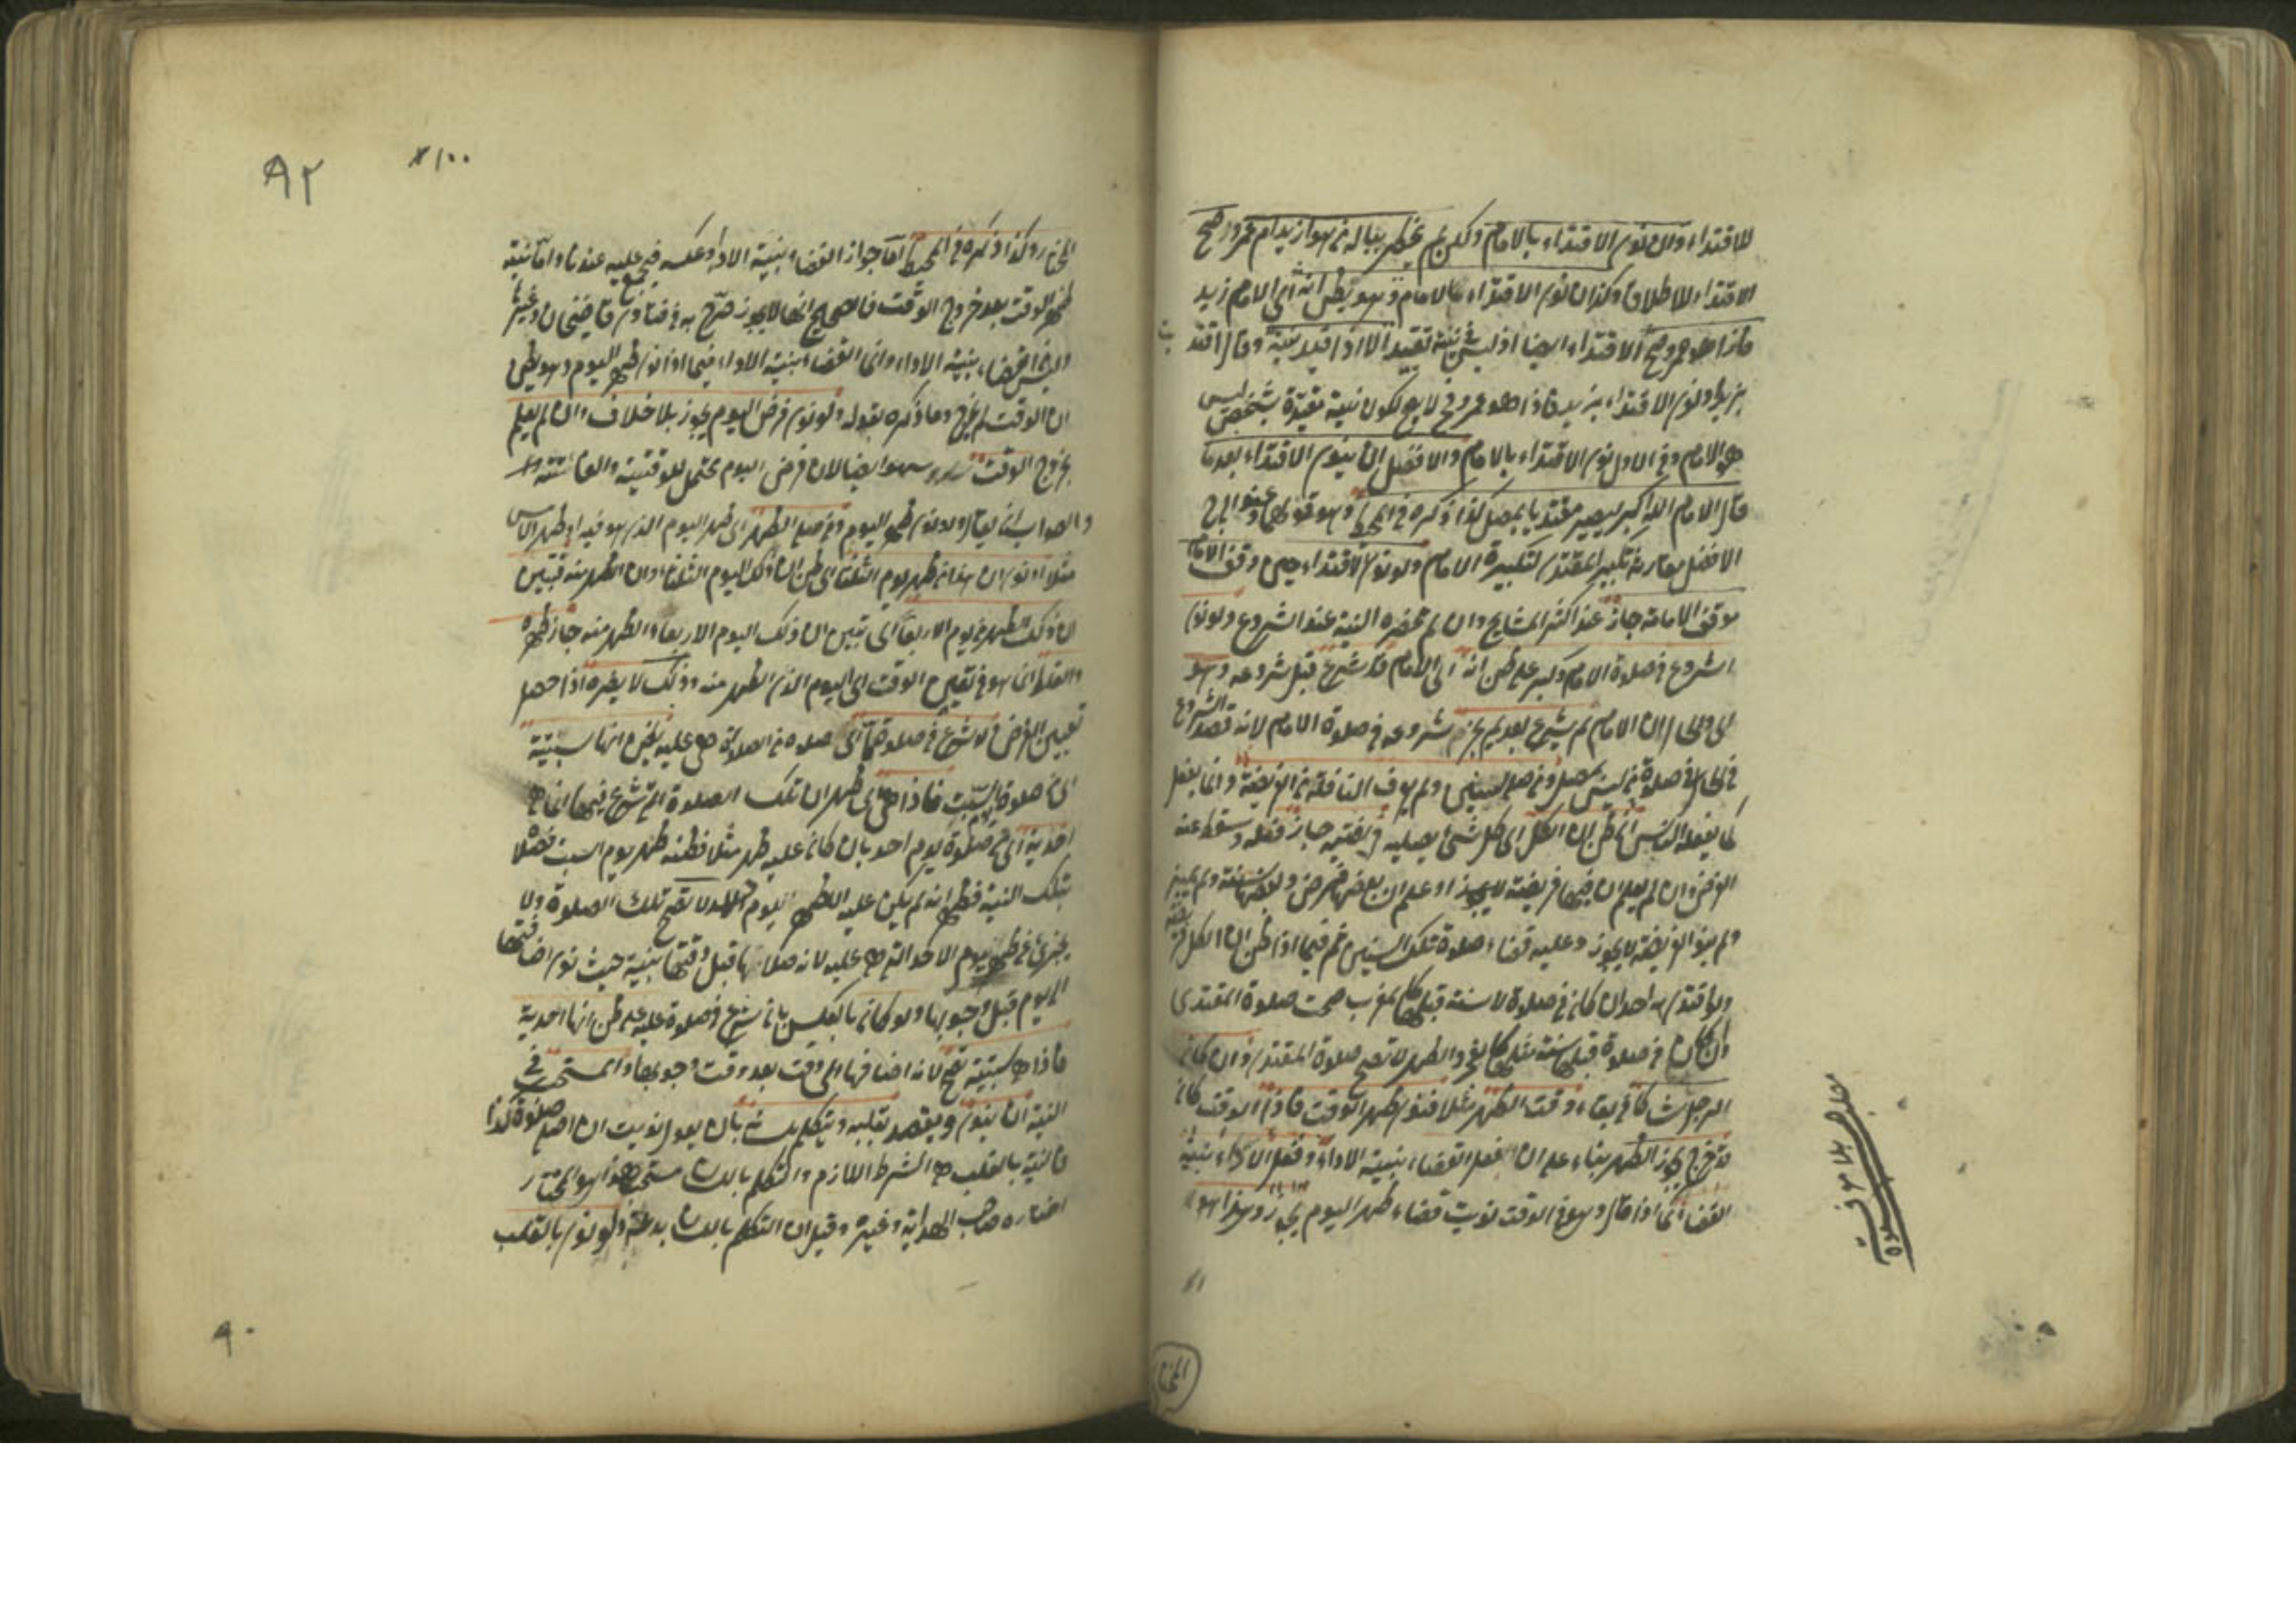 للاقتداء ولان نوى الاقتداء بالامام ولكن لم يخطر بباله من هو ازيد ام عمرو صح
الاقتداء للاطلاق وكذا ان نوى الاقتداء بالامام وهو يظن انه اى الامام زيد
فاذا هو عمرو صح الاقتداء ايضا اذ ليس نيته تقييد الا اذا قيد نيته وقال اقتديت
بزيد او نوى الاقتداء بزيد فاذا هو عمرو فح لا يصح لكون نيته مقيدة بشخص ليس
هو الامام وفى الاول نوى الاقتداء بالامام والافضل ان ينوى الاقتداء بعد ما
قال الامام الله اكبر ليصير مقتديا بمصل كذا ذكره فى المحيط وهو قولهما وعند ابى ح
الافضل مقارنة تكبير المقتدى لتكبيرة الامام ولو نوى الاقتداء حين وقف الامام
موقف الامامة جاز عند اكثر المشايخ وان لم تحضره النية عند الشروع ولو نوى
الشروع فى صلوة الامام وكبر على ظن انه اى الامام قد شرع قبل شروعه وهو
اى والحال ان الامام لم يشرع بعد لم يجز شروعه فى صلوة الامام لانه قصد الشروع
فى الحال فى صلوة من ليس بمصل ومن صلى سنين ولم يعرف النافلة من الفريضة وانما يفعل
كما يفعله الناس ان ظن ان الكل اى كل شئ يصليه فريضة جاز فعله وسقط عنه
الفرض وان لم يعلم ان فيها فريضة لا يجوز او علم ان بعضها فرض وبعضها سنة ولم يميز
ولم ينو الفريضة لا يجوز وعليه قضاء صلوة تلك السنين ثم فيما اذا ظن ان الكل فريضة
ولو اقتدى به احد ان كان فى صلوة لا سنة قبلها كالمغرب صحت صلوة المقتدى
وان كان فى صلوة قبلها سنة مثلها كالفجر والظهر لا تصح صلوة المقتدى وان كان
الرجل شاكا فى بقاء وقت الظهر مثلا فنوى ظهر الوقت فاذا الوقت كان
قد خرج يجوز الظهر بناء على ان فعل القضاء بنية الاداء وفعل الاداء بنية
القضاء كما اذا قال وهو فى الوقت نويت قضاء ظهر اليوم يجوز وهذا هو
المختار
مطلب
٩٢
المختار وكذا ذكره فى المحيط اما جواز القضاء بنية الاداء وعكسه فمجمع عليه عندنا واما نية
ظهر الوقت بعد خروج الوقت فالصحيح انها لا يجوز صرح به فى فتاوى قاضيخان وغيرها
وليس قضاء بنية الاداء وانما القضاء بنية الاداء فيما اذا نوى ظهر اليوم وهو يظن
ان الوقت لم يخرج وما ذكره بقوله ولو نوى فرض اليوم يجوز بلا خلاف وان لم يعلم
بخروج الوقت سهو ايضا لان فرض اليوم يحتمل للوقتية والفائتة
والصواب ان يقال ولو نوى ظهر اليوم ومن صلى الظهر اى ظهر اليوم الذى هو فيه او ظهر الامس
مثلا ونوى ان هذا من ظهر يوم الثلثاء اى ظن ان ذلك اليوم الثلثاء وان الظهر منه فتبين
ان ذلك الظهر من يوم الاربعاء اى تبين ان ذلك اليوم الاربعاء والظهر منه جاز ظهره
والغلط انما هو فى تعيين الوقت اى اليوم الذى الظهر منه وذلك لا يضره اذا حصل
تعيين الفرض ولو شرع فى صلوة ما اى صلوة من الصلوة هى عليه بظن انها سبتية
اى من صلوة السبت فاذا هى اى ظهر ان تلك الصلوة التى شرع فيها انما هى
احدية اى من صلوة يوم احد بان كان عليه ظهر مثلا فظنه ظهر يوم السبت فصلا
بتلك النية فظهر انه لم يكن عليه الا ظهر اليوم لا تصح تلك الصلوة ولا
يجزئ عن ظهر يوم الاحد التى هى عليه لانه صلاتها قبل وقتها بنية حيث نوى اضافتها
الى يوم قبل وجوبها ولو كان بالعكس بان شرع فى صلوة عليه على ظن انها احدية
فاذا هى سبتية تصح لانه اضافها الى وقت بعد وقت وجوبها والمستحب فى
النية ان ينوى ويقصد بقلبه ويتكلم بلسانه بان يقول نويت ان اصلى صلوة كذا
فالنية بالقلب هى الشرط اللازم والتكلم باللسان مستحب هذا هو المختار
اختاره صاحب الهداية وغيره وقيل ان التكلم باللسان بدعة ولو نوى بالقلب
٩٠